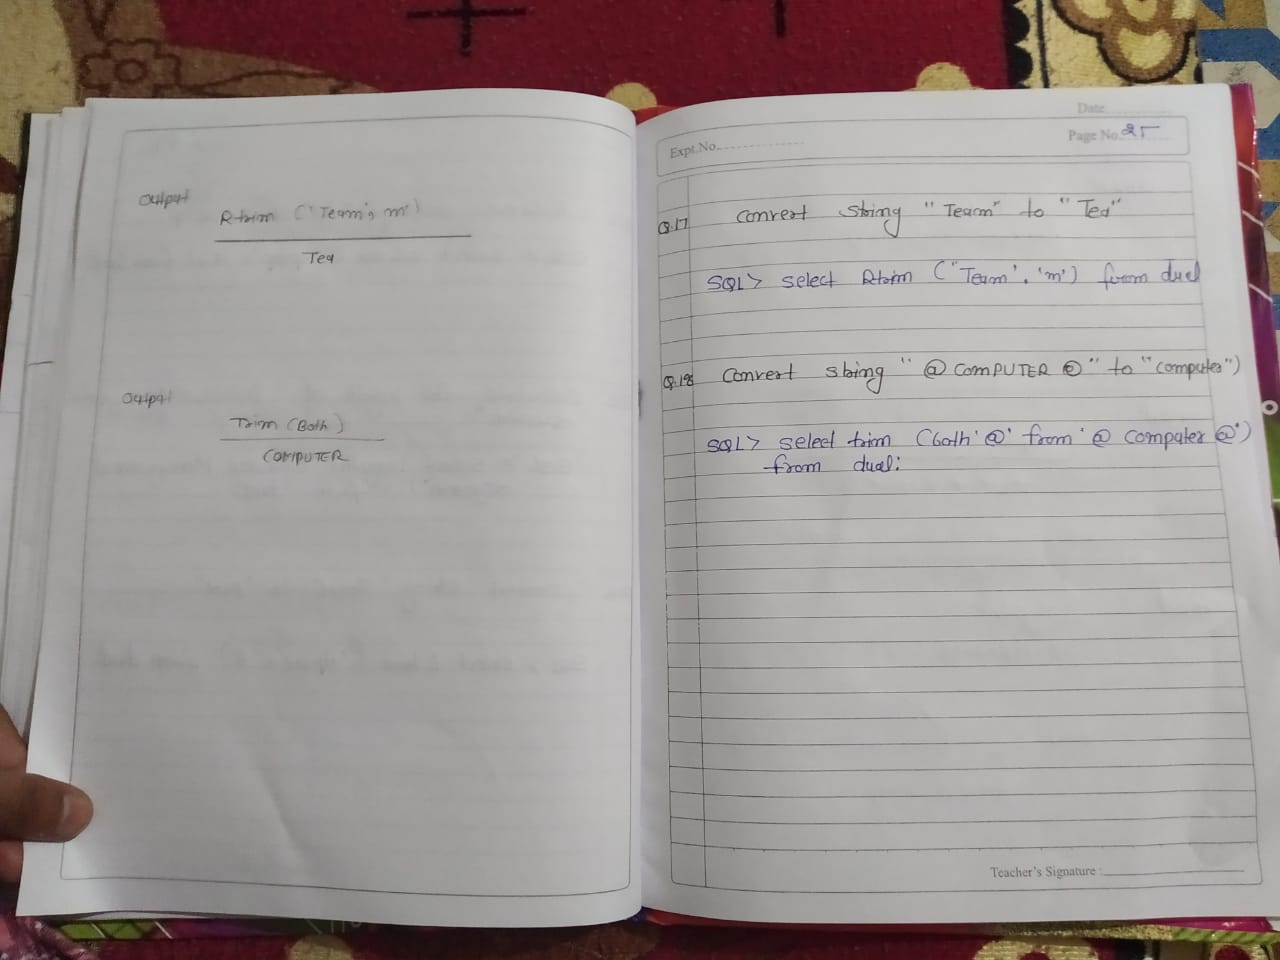 Output
Rtrim ('Team', m')
Tea
Output
Trim (Both)
COMPUTER
Date
Expt.No.
Page No. 25
Q.17 Convert string "Team" to "Tea"
SQL> select Rtrim ("Team', 'm') from dual
Q.18 Convert string "@ COMPUTER @" to "computer")
SQL> select trim (both '@' from '@ computer @')
from dual:
Teacher's Signature :